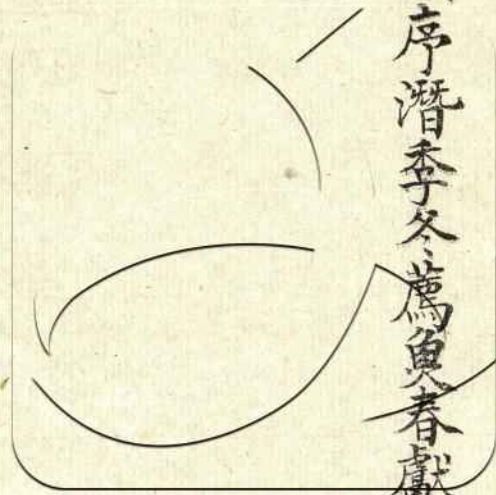 序潛季冬薦魚春獻